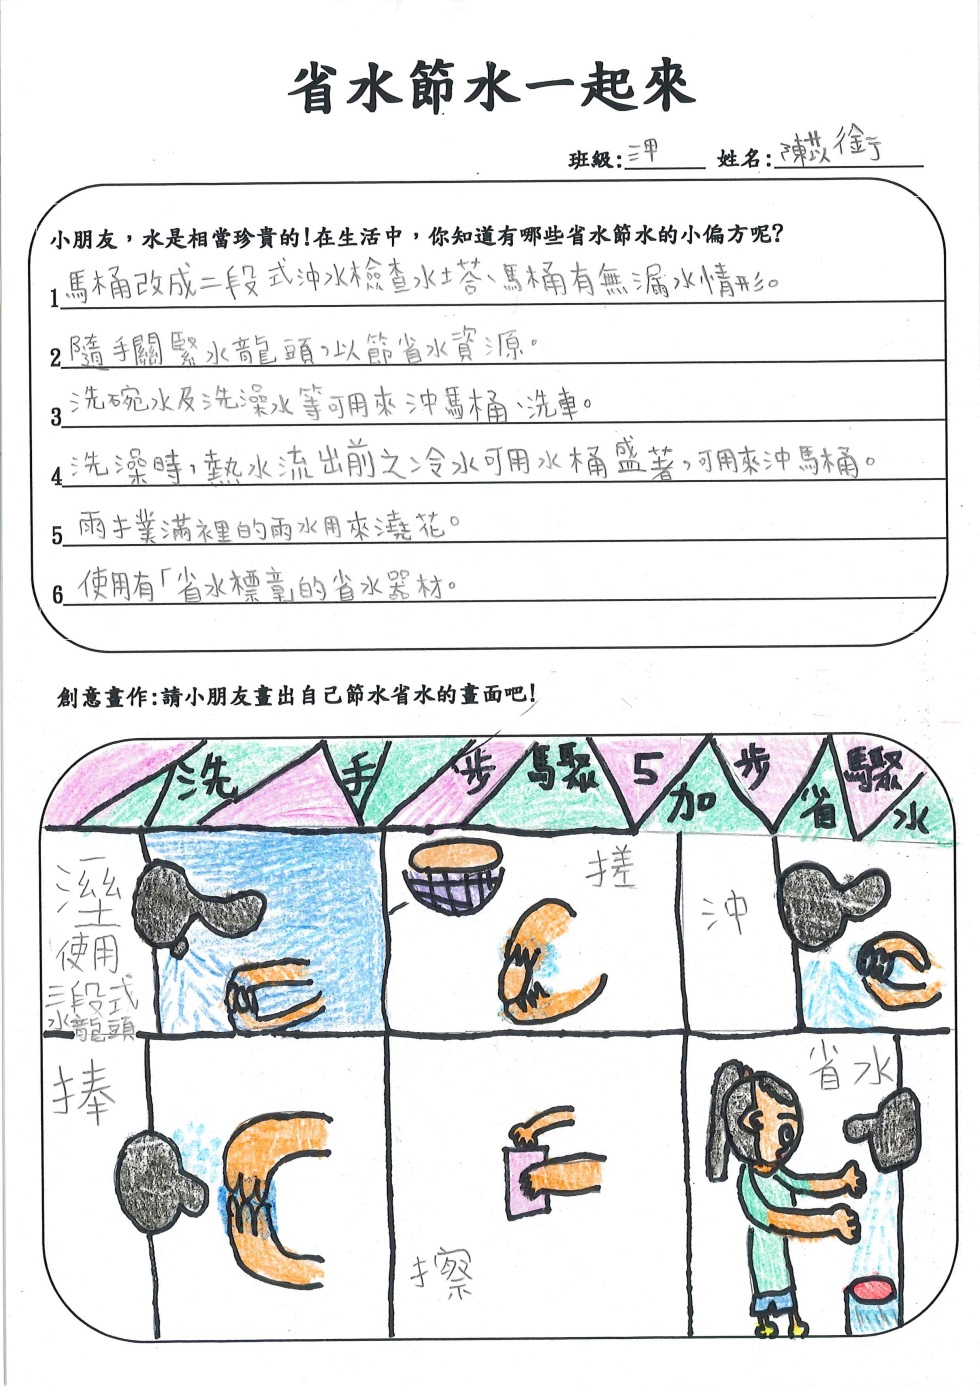 省水節水一起來
班級:三甲 姓名:陳
小朋友，水是相當珍貴的!在生活中，你知道有哪些省水節水的小偏方呢?
1 馬桶改成二段式沖水檢查水塔、馬桶有無漏水情形。
2 隨手關緊水龍頭，以節省水資源。
3 洗碗水及洗澡水等可用來沖馬桶、洗車。
4 洗澡時，熱水流出前之冷水可用水桶盛著，可用來沖馬桶。
5 雨撲滿裡的雨水用來澆花。
6 使用有「省水標章」的省水器材。
創意畫作:請小朋友畫出自己節水省水的畫面吧!
洗手步驟5加步省驟水
溼
使用
三段式
水龍頭
搓
沖
捧
擦
省水